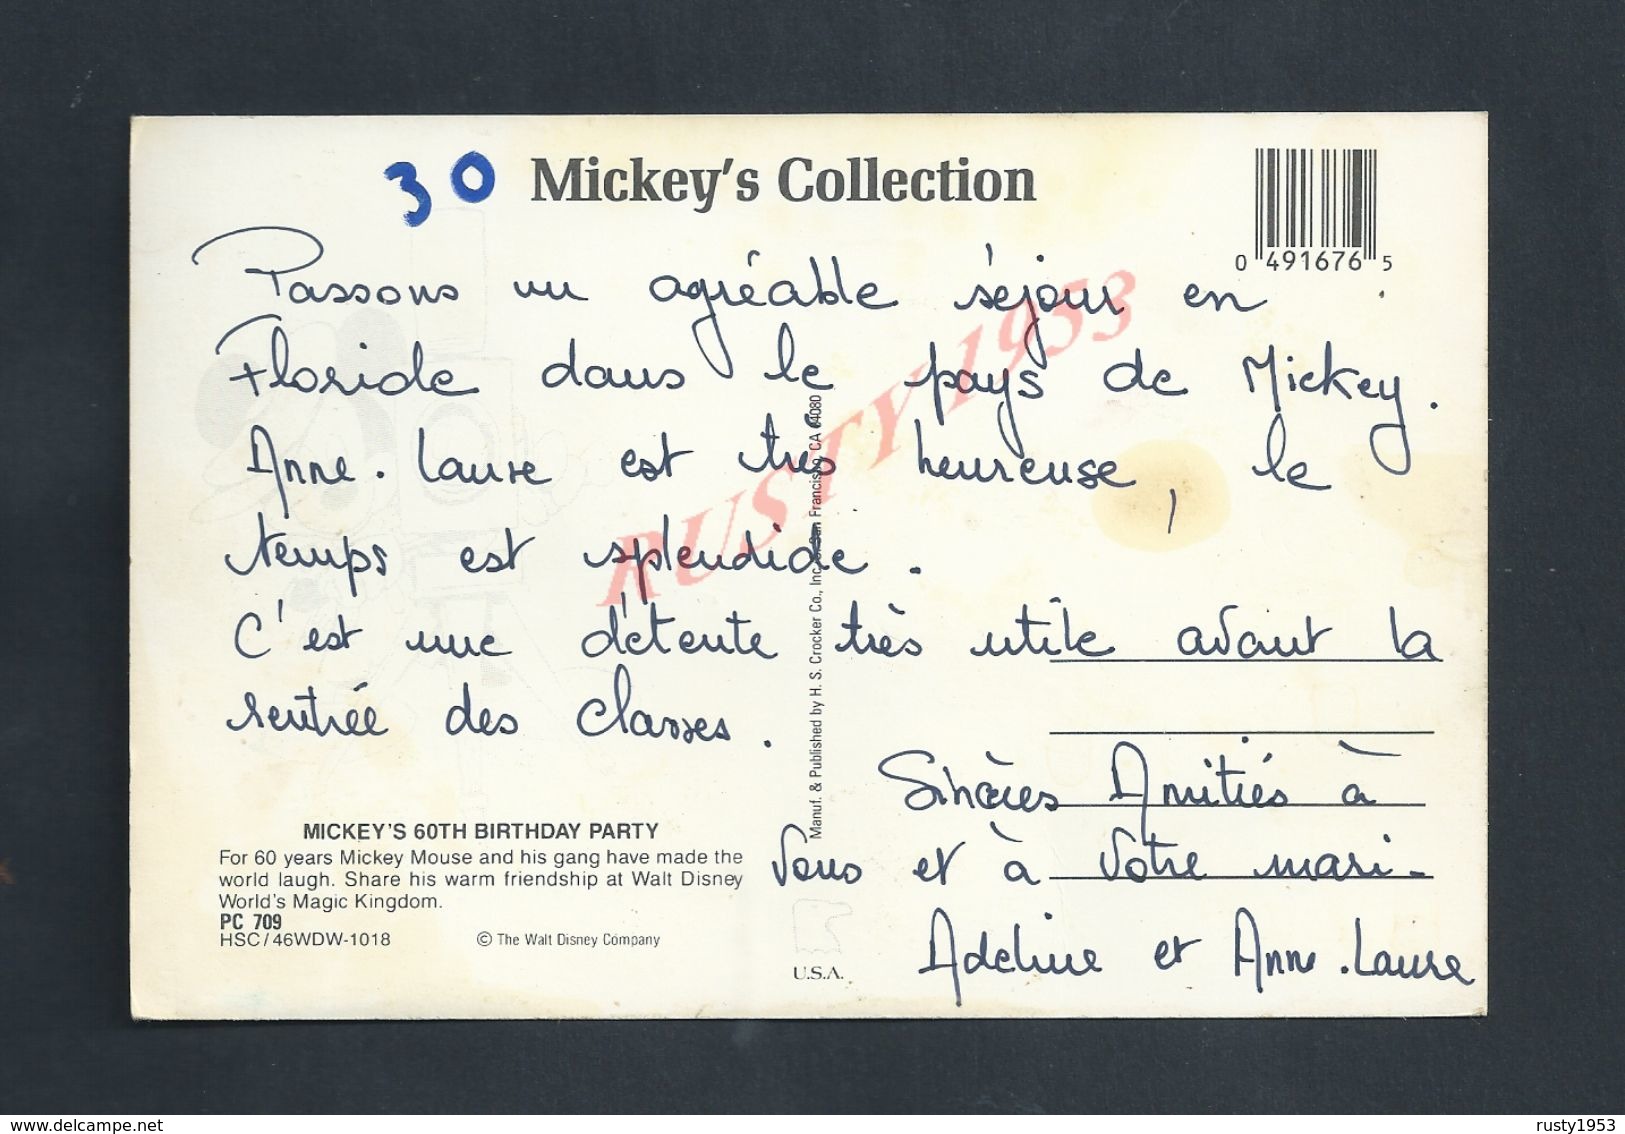 30 Mickey's Collection
0 491676 5
Passons un agréable séjour en
Floride dans le pays de Mickey.
Anne.Laure est très heureuse, le
temps est splendide.
C'est une détente très utile avant la
rentrée des classes.
Sincères Amitiés à
Vous et à Votre mari.
Adeline et Anne.Laure
MICKEY'S 60TH BIRTHDAY PARTY
For 60 years Mickey Mouse and his gang have made the
world laugh. Share his warm friendship at Walt Disney
World's Magic Kingdom.
PC 709
HSC/46WDW-1018 © The Walt Disney Company
Manuf. & Published by H. S. Crocker Co., Inc., San Francisco, CA 94080
U.S.A.
RUSTY 1953
delcampe.net
rusty1953